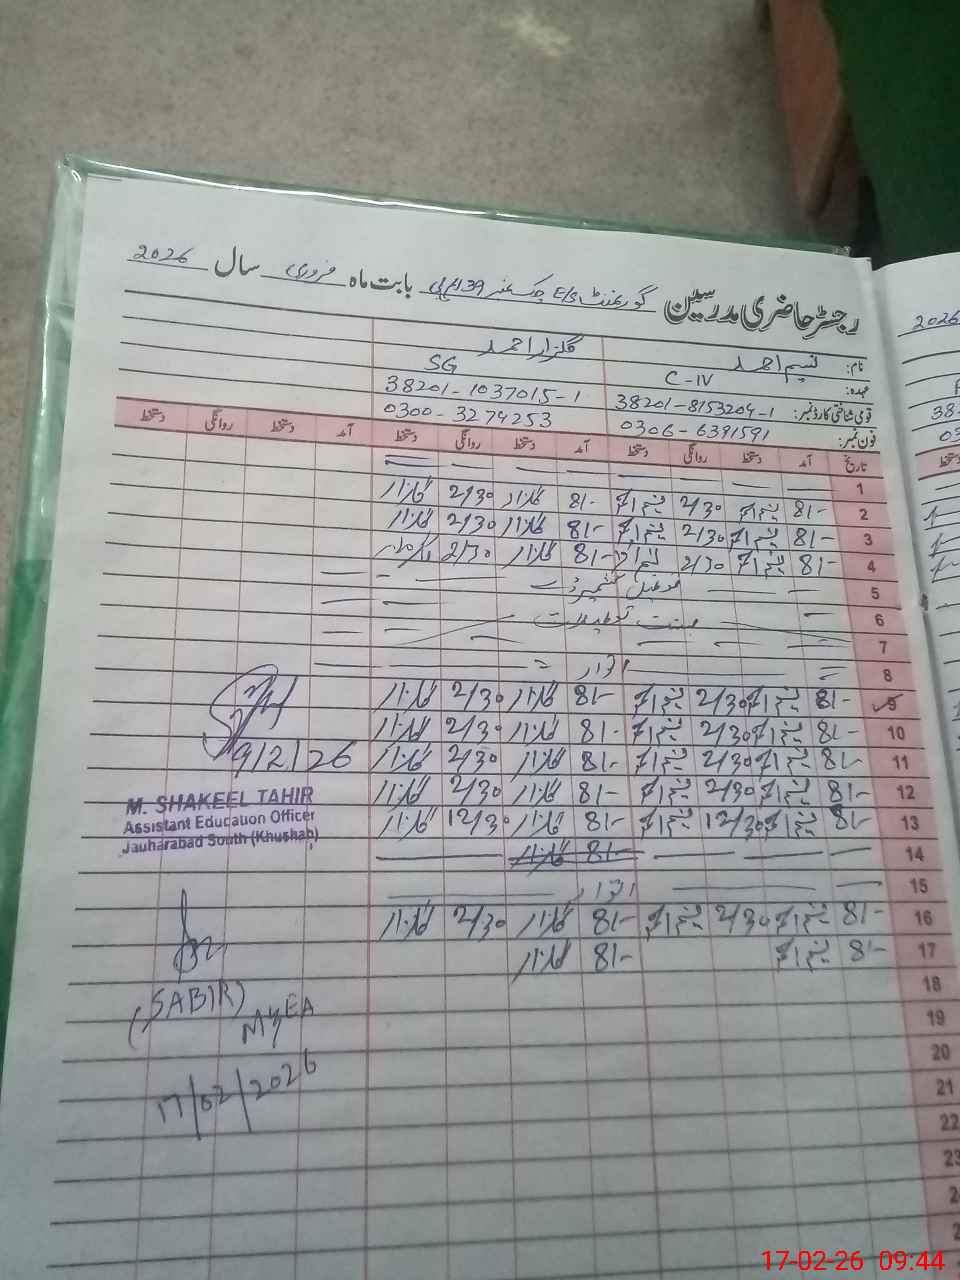 رجسٹر حاضری مدرسین گورنمنٹ E/S چک نمبر 39 بابت ماہ فروری سال 2026
نام: نسیم احمد گلزار احمد
عہدہ: C-IV SG
قومی شناختی کارڈ نمبر: 38201-8153204-1 38201-1037015-1
فون نمبر: 0306-6391591 0300-3274253
تاریخ آمد دستخط روانگی دستخط آمد دستخط روانگی دستخط آمد دستخط روانگی دستخط
1
2 8/- نسیم احمد 2/30 نسیم احمد 8/- گلزار 2/30 گلزار
3 8/- نسیم احمد 2/30 نسیم احمد 8/- گلزار 2/30 گلزار
4 8/- نسیم احمد 2/30 نسیم احمد 8/- گلزار 2/30 گلزار
5 کشمیر ڈے
6 تعطیلات
7
8 اتوار
9 8/- نسیم احمد 2/30 نسیم احمد 8/- گلزار 2/30 گلزار
10 8/- نسیم احمد 2/30 نسیم احمد 8/- گلزار 2/30 گلزار
11 8/- نسیم احمد 2/30 نسیم احمد 8/- گلزار 2/30 گلزار
12 8/- نسیم احمد 2/30 نسیم احمد 8/- گلزار 2/30 گلزار
13 8/- نسیم احمد 12/30 نسیم احمد 8/- گلزار 12/30 گلزار
14 8/- گلزار
15 اتوار
16 8/- نسیم احمد 2/30 نسیم احمد 8/- گلزار 2/30 گلزار
17 8/- نسیم احمد 8/- گلزار
18
19
20
21
22
23
9/2/26
M. SHAKEEL TAHIR
Assistant Education Officer
Jauharabad South (Khushab)
(SABIR)
MEA
17/02/2026
2026
17-02-26 09:44